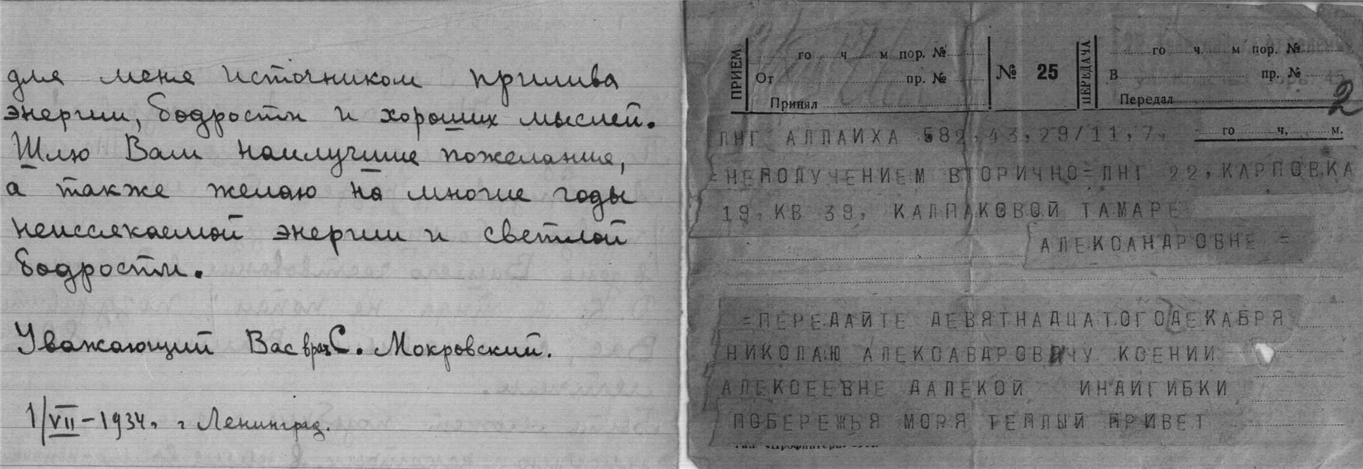 для меня источником прилива
энергии, бодрости и хороших мыслей.
Шлю Вам наилучшие пожелания,
а также желаю на многие годы
неиссякаемой энергии и светлой
бодрости.
Уважающий Вас врач С. Мокровский.
1/VII – 1934. г Ленинград.
ПРИЕМ
го ч. м пор. №
От пр. №
Принял
№ 25
ПЕРЕДАЧА
го ч. м пор. №
В пр. №
Передал
2
го ч. м.
ЛНГ АЛЛАИХА 582,43,29/11,7,
=НЕПОЛУЧЕНИЕМ ВТОРИЧНО=ЛНГ 22, КАРПОВКА
19, КВ 39, КАЛПАКОВОЙ ТАМАРЕ
АЛЕКОАНДРОВНЕ =
=ПЕРЕДАЙТЕ ДЕВЯТНАДЦАТОГОДЕКАБРЯ
НИКОЛАЮ АЛЕКОАВДРОВИЧУ КОЕНИИ
АЛЕКОЕЕВНЕ ДАЛЕКОЙ ИНДИГИБКИ
ПОБЕРЕЖЬЯ МОРЯ ТЕПЛЫЙ ПРИВЕТ